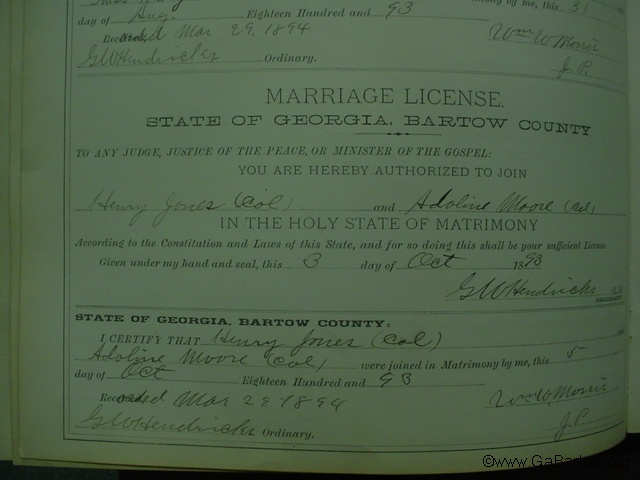 mony by me, this 31
day of Aug. Eighteen Hundred and 93
Recorded Mar 29, 1894 Wm W Morris
GW Hendricks Ordinary. J. P.
MARRIAGE LICENSE.
STATE OF GEORGIA, BARTOW COUNTY.
TO ANY JUDGE, JUSTICE OF THE PEACE, OR MINISTER OF THE GOSPEL:
YOU ARE HEREBY AUTHORIZED TO JOIN
Henry Jones (Col) and Adoline Moore (Col)
IN THE HOLY STATE OF MATRIMONY
According to the Constitution and Laws of this State, and for so doing this shall be your sufficient License.
Given under my hand and seal, this 3 day of Oct 1893
GW Hendricks
STATE OF GEORGIA, BARTOW COUNTY:
I CERTIFY THAT Henry Jones (Col)
Adoline Moore (Col) were joined in Matrimony by me, this 5
day of Oct Eighteen Hundred and 93
Recorded Mar 29 1894 Wm W. Morris
GW Hendricks Ordinary. J. P.
©www.GaBartow.org